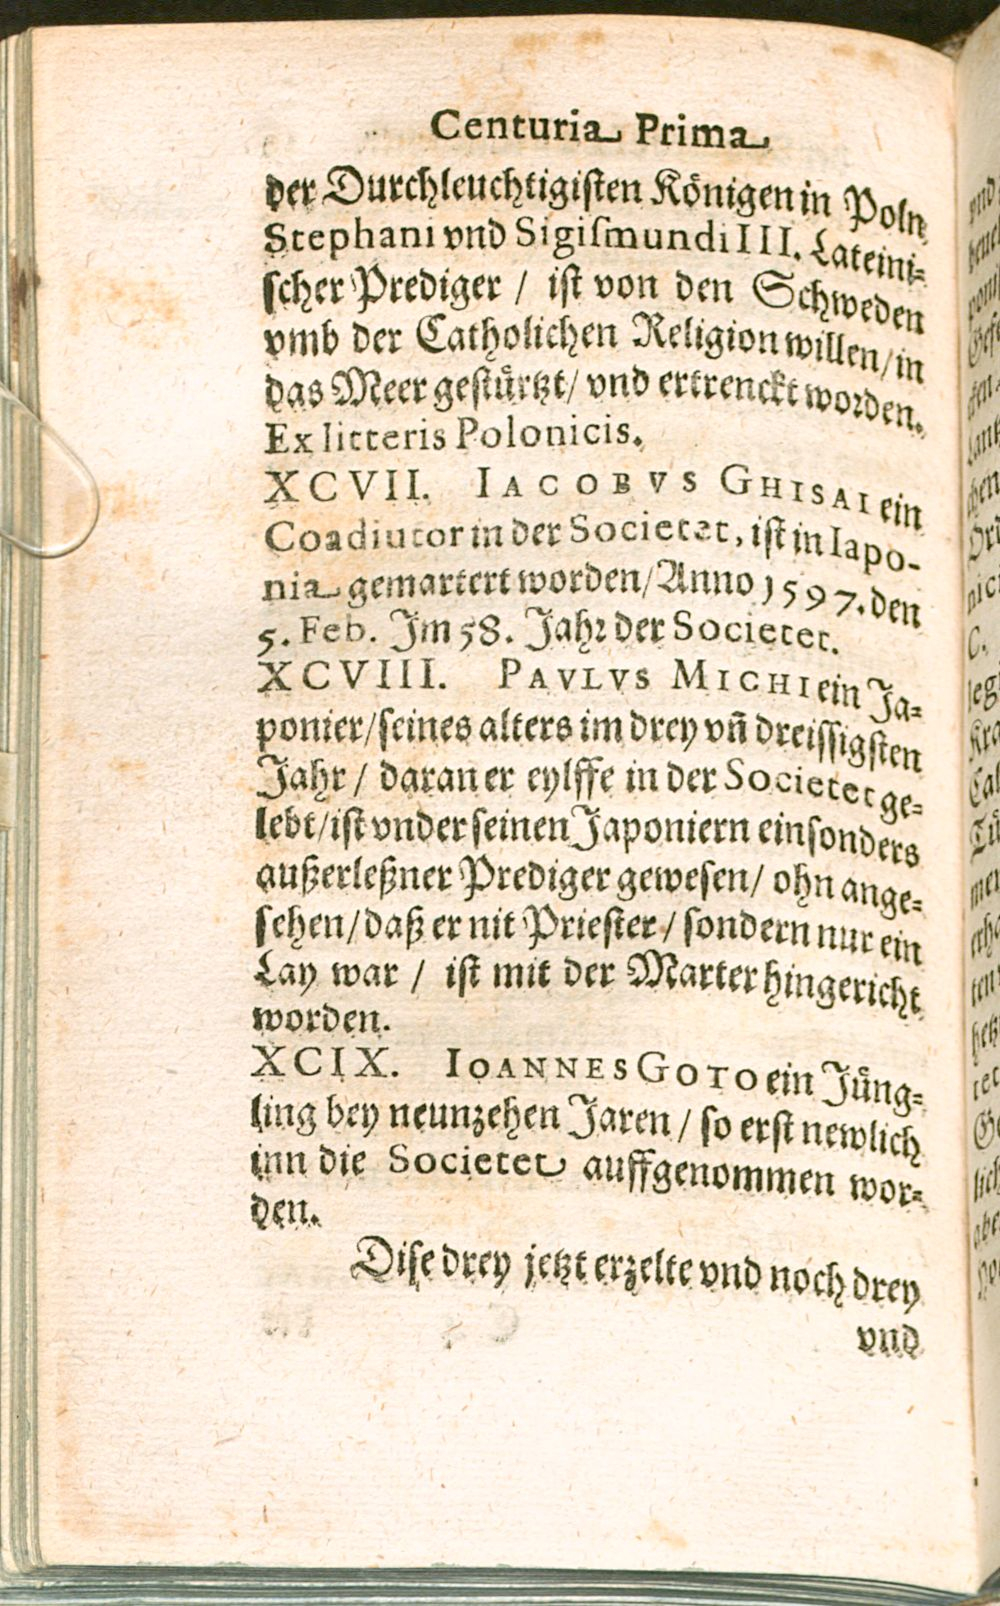 Centuria Prima
der Durchleuchtigisten Königen in Poln
Stephani vnd Sigismundi III. Lateini-
scher Prediger / ist von den Schweden
vmb der Catholichen Religion willen / in
das Meer gestürtzt / vnd ertrenckt worden.
Ex litteris Polonicis.
XCVII. IACOBVS GHISAI ein
Coadiutor in der Societet, ist in Iapo-
nia gemartert worden / Anno 1597. den
5. Feb. Im 58. Jahr der Societet.
XCVIII. PAVLVS MICHI ein Ja-
ponier / seines alters im drey vñ dreissigsten
Jahr / daran er eylffe in der Societet ge-
lebt / ist vnder seinen Japoniern ein sonders
außerleßner Prediger gewesen / ohn ange-
sehen / daß er nit Priester / sondern nur ein
Lay war / ist mit der Marter hingericht
worden.
XCIX. IOANNES GOTO ein Jüng-
ling bey neunzehen Jaren / so erst newlich
inn die Societet auffgenommen wor-
den.
Dise drey jetzt erzelte vnd noch drey
vnd